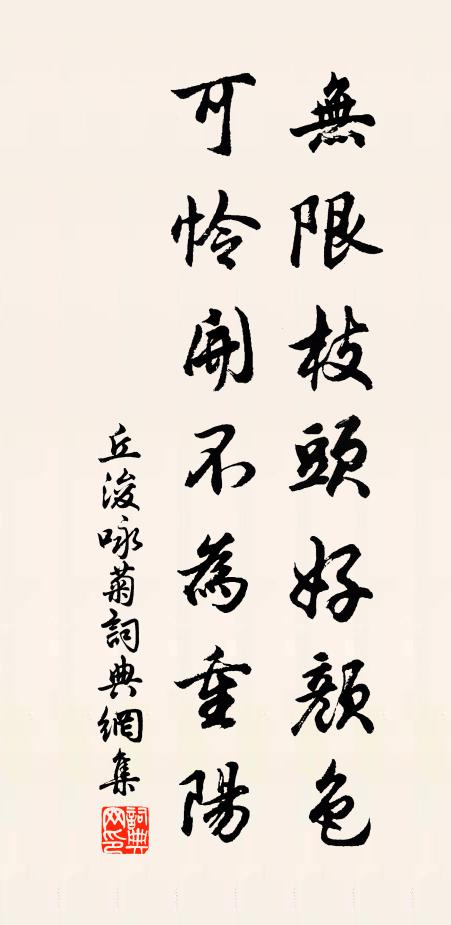 無限枝頭好顔色
可怜開不為重陽
丘浚咏菊詞典網集
詞典網印